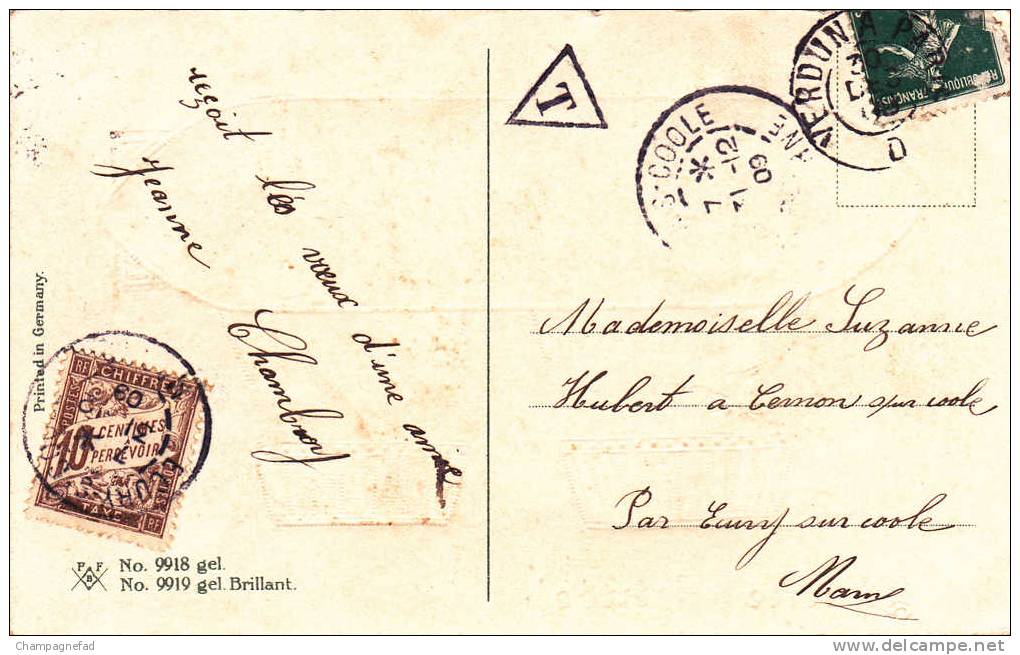 reçoit les vœux d'une amie
Jeanne
Printed in Germany.
RF CHIFFRE
POSTES
10 CENTIMES
PERCEVOIR
TAXE
RF
FLURY
09
P F
B
No. 9918 gel.
No. 9919 gel. Brillant.
T
S-COOLE
*
7
31-12
09
NE
VERDUN A PARIS
D
REPUBLIQUE FRANÇAISE
Mademoiselle Suzanne
Hubert a Cernon sur coole
Par Ecury sur coole
Marne
Champagnefad
delcampe.net